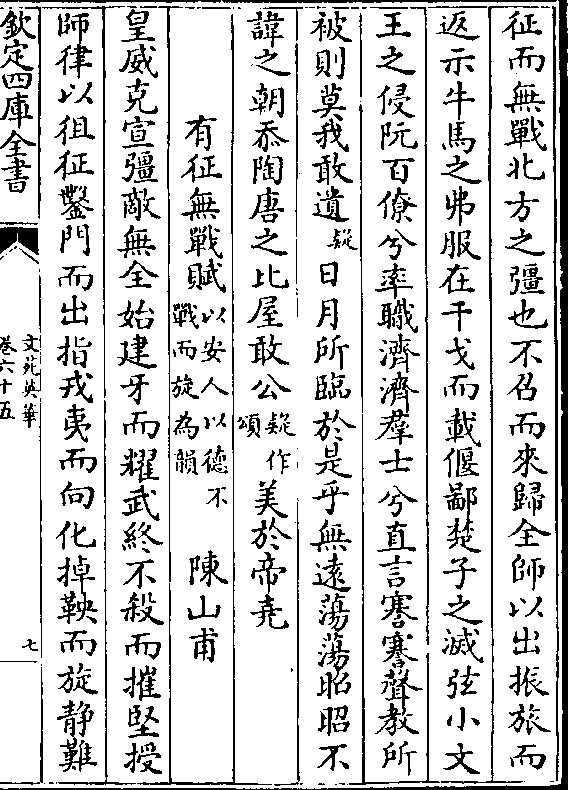 征而無戰北方之彊也不召而來歸全師以出振旅而
返示牛馬之弗服在干戈而載偃鄙楚子之滅弦小文
王之侵阮百僚兮率職濟濟羣士兮直言謇謇聲教所
被則莫我敢遺疑日月所臨於是乎無遠蕩蕩昭昭不
諱之朝忝陶唐之比屋敢公疑作頌美於帝堯
有征無戰賦以安人以德不戰而旋為韻 陳山甫
皇威克宣彊敵無全始建牙而耀武終不殺而摧堅授
師律以徂征鑿門而出指戎夷而向化掉鞅而旋静難
欽定四庫全書
文苑英華
卷六十五
七